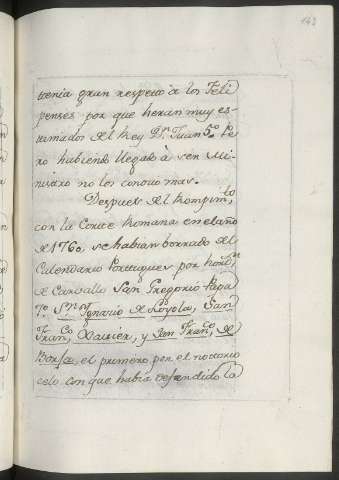 143
tenia gran respeto à los Feli
penses por que heran muy es-
timados del Rey Dn. Juan 5º. Pe
ro habiendo llegado à ser Mi-
nistro no los conoció mas.
Despues del Rompimto
con la Corte Romana en el año
de 1760 se habian borrado del
Calendario Portugues por hordn
de Carvallo San Gregorio Papa
7º. Sn. Ignacio de Loyola, San
Franco. Xavier, y San Franco. de
Borja, el primero por el notorio
celo con que habia defendido la